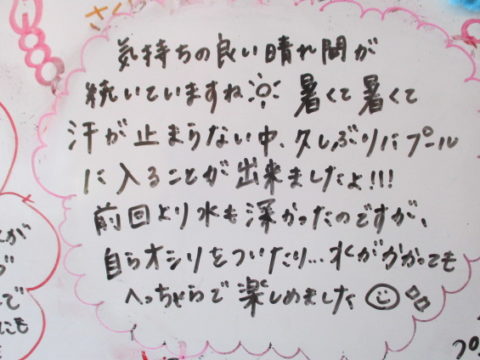 気持ちの良い晴れ間が
続いていますね 暑くて暑くて
汗が止まらない中、久しぶりにプール
に入ることが出来ましたよ!!!
前回より水も深かったのですが、
自らオシリをついたり…水がかかっても
へっちゃらで楽しめました